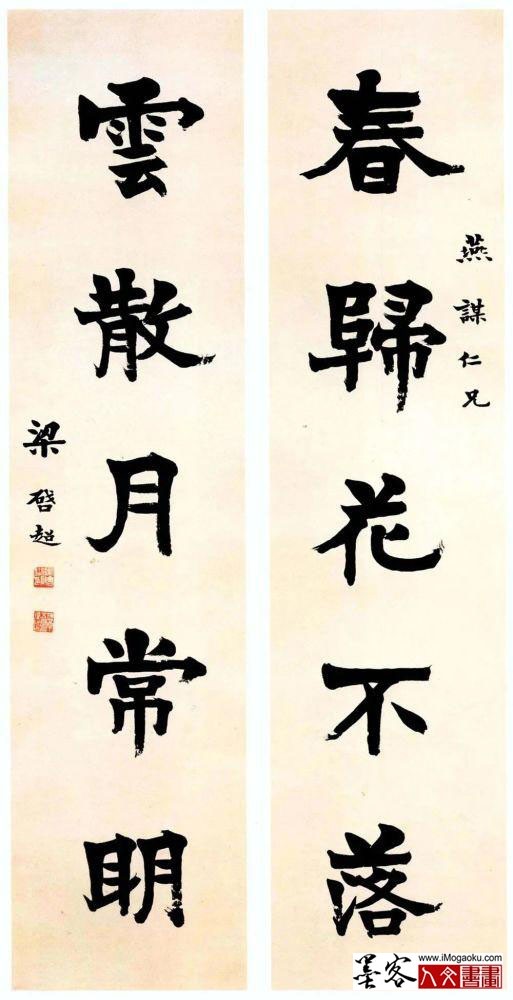 燕謀仁兄
春歸花不落
雲散月常明
梁啓超
墨客
www.iMogaoku.com
人文書畫